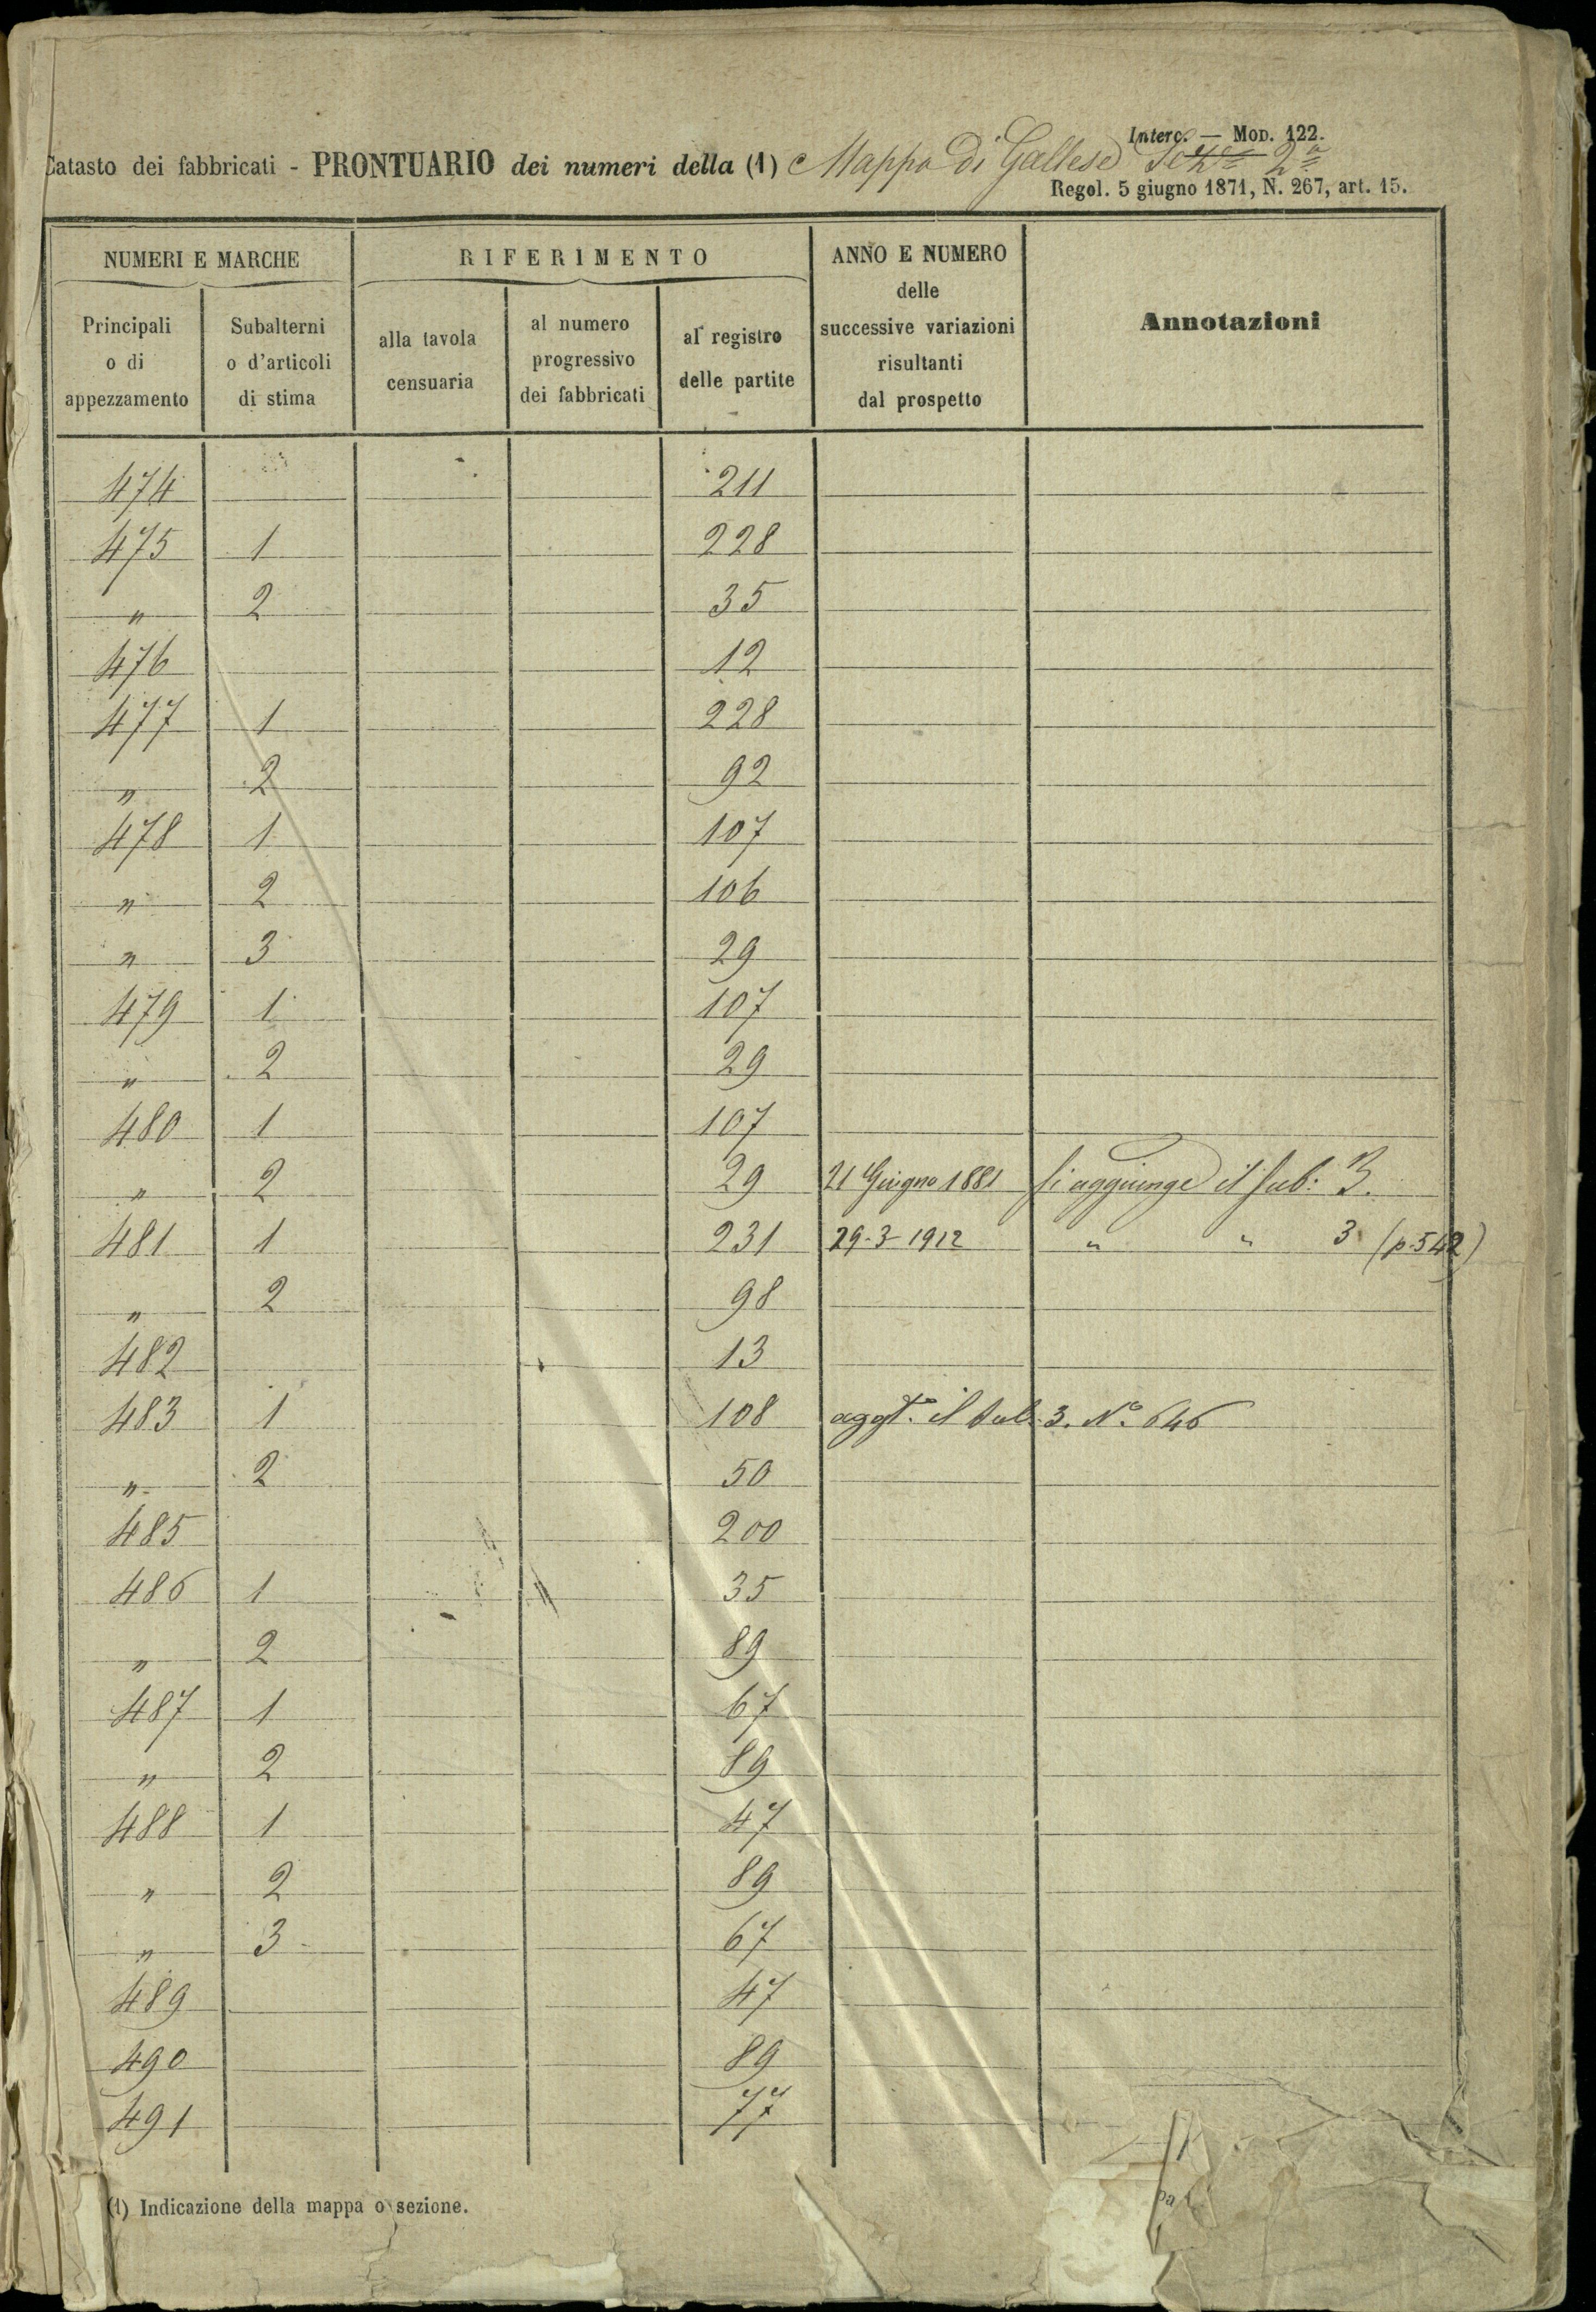 Interc. — MOD. 122.
Catasto dei fabbricati - PRONTUARIO dei numeri della (1) Mappa Di Gallese Sez.e 2a
Regol. 5 giugno 1871, N. 267, art. 15.
NUMERI E MARCHE RIFERIMENTO ANNO E NUMERO delle successive variazioni risultanti dal prospetto Annotazioni
Principali o di appezzamento Subalterni o d'articoli di stima alla tavola censuaria al numero progressivo dei fabbricati al registro delle partite
474 211
475 1 228
" 2 35
476 12
477 1 228
" 2 92
478 1 107
" 2 106
" 3 29
479 1 107
" 2 29
480 1 107
" 2 29 21 Giugno 1881 Si aggiunge il sub: 3.
481 1 231 29-3-1912 " " 3 (p. 542)
" 2 98
482 13
483 1 108 aggt.o il sub. 3. No. 646
" 2 50
485 200
486 1 35
" 2 89
487 1 67
" 2 89
488 1 47
" 2 89
" 3 67
489 47
490 89
491 77
(1) Indicazione della mappa o sezione.